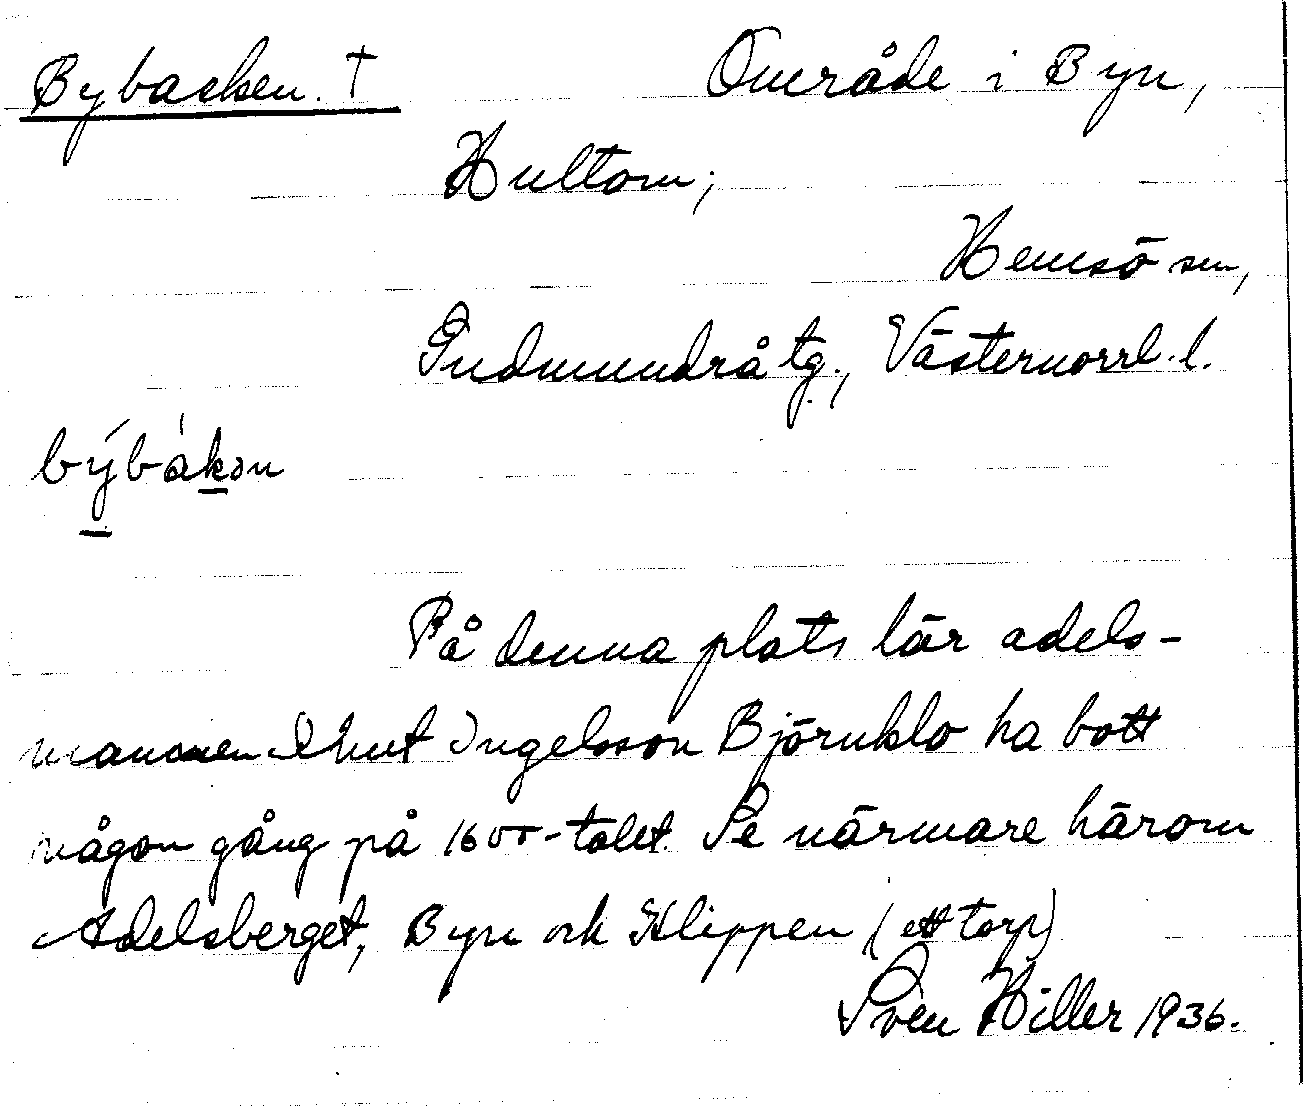 Bybacken. † Område i Byn,
Hultom;
Hemsö sn,
Gudmundrå tg., Västernorrl. l.
býbákən
På denna plats lär adels-
mannen Knut Ingelsson Björnklo ha bott
någon gång på 1600-talet. Se närmare härom
Adelsberget, Byn och Klippen (ett torp)
Sven Hiller 1936.